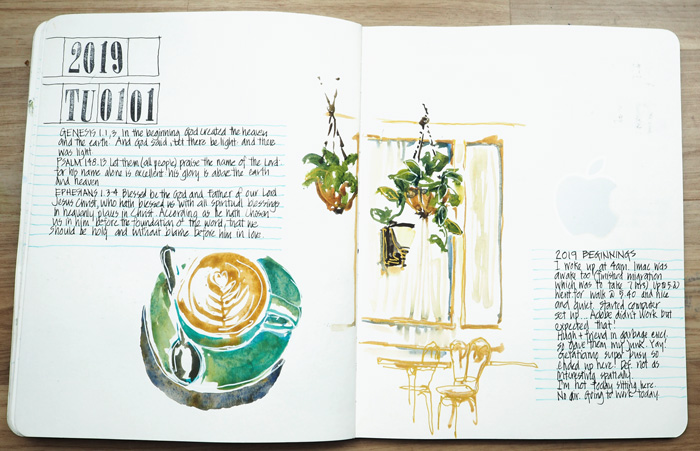 2019
TU 01 01
GENESIS 1.1,3 In the beginning God created the heaven
and the earth. And God said, let there be light: and there
was light.
PSALM 148.13 Let them (all people) praise the name of the Lord
for his name alone is excellent his glory is above the earth
and heaven
EPHESIANS 1.3-4 Blessed be the God and Father of our Lord
Jesus Christ, who hath blessed us with all spiritual blessings
in heavenly places in Christ. According as he hath chosen
us in him before the foundation of the world, that we
should be holy and without blame before him in love.
2019 BEGINNINGS
I woke up at 4am. Imac was
awake too (finished migration
which was to take 7 hrs) Up @ 5.20
went for walk @ 5.40 and nice
and quiet. started computer
set up... Adobe didn't work but
expected that!
Hugh + friend in garbage encl.
so gave them my junk. Yay!
super busy so
ended up here! Def. not as
interesting spatially.
I'm not today sitting here.
No dir. Going to work today.